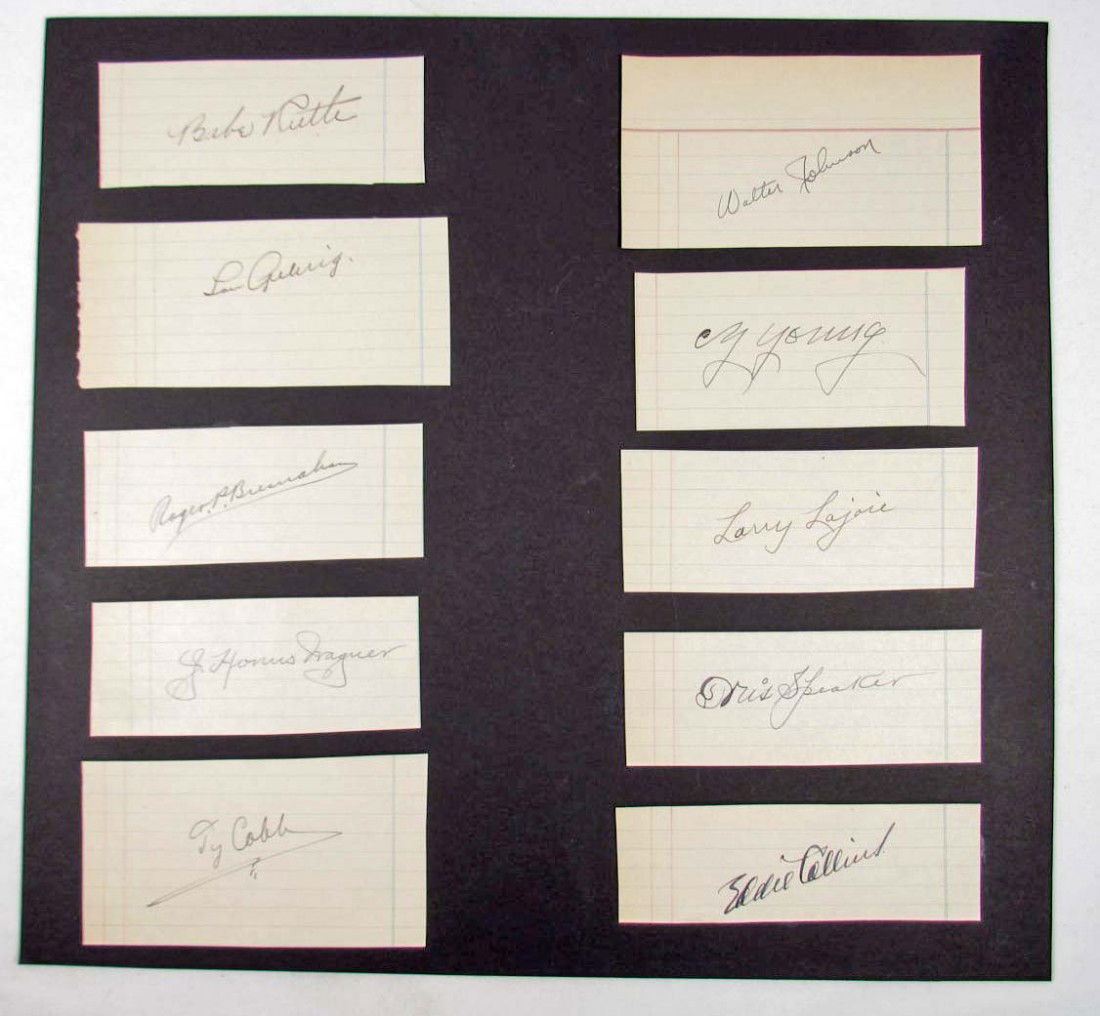 Babe Ruth
Lou Gehrig.
Roger. P. Bresnahan
J. Honus Wagner
Ty Cobb
Walter Johnson
Cy Young
Larry Lajoie
Tris Speaker
Eddie Collins